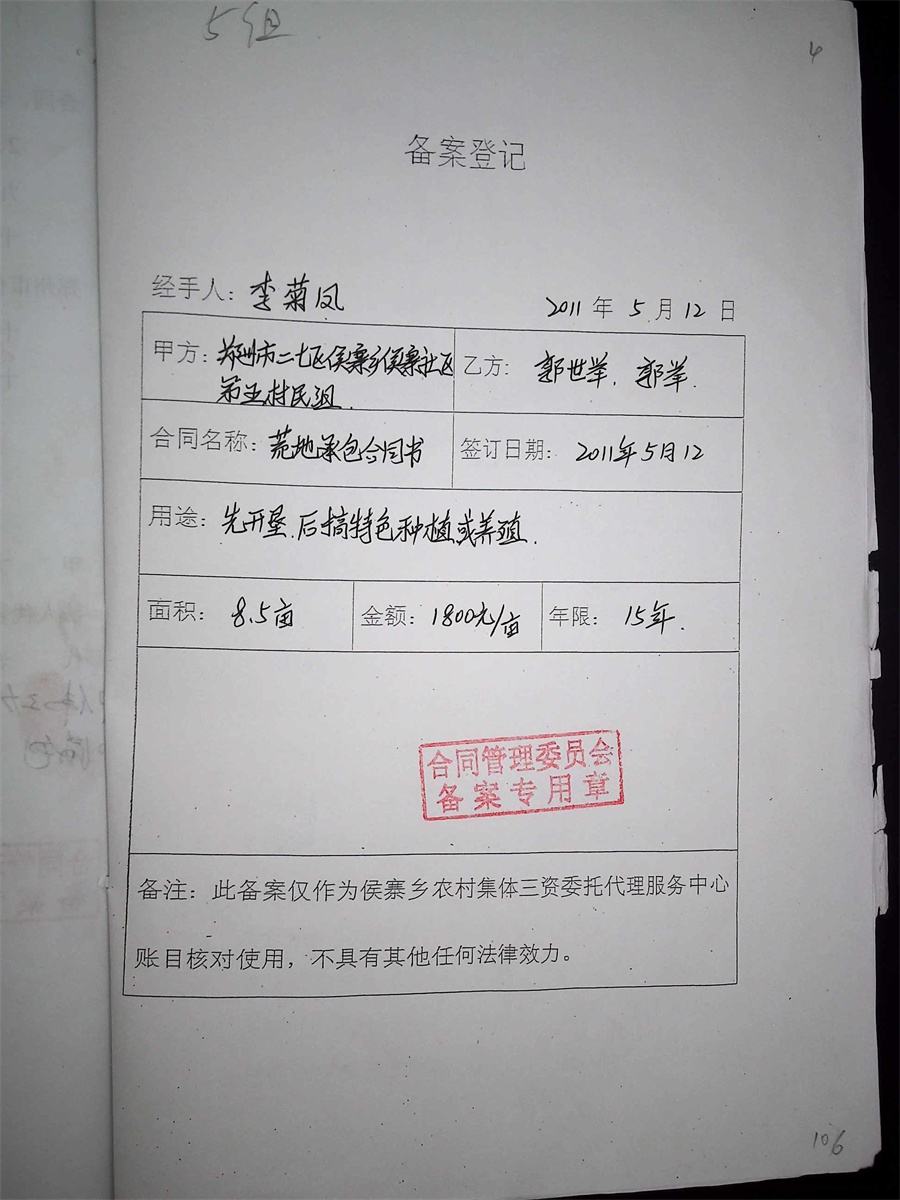 5组
4
备案登记
经手人：李菊凤
2011年5月12日
甲方：郑州市二七区侯寨乡侯寨社区
第五村民组.
乙方：郭世举. 郭举.
合同名称：荒地承包合同书
签订日期：2011年5月12
用途：先开垦.后搞特色种植或养殖.
面积：8.5亩
金额：1800元/亩
年限：15年.
合同管理委员会
备案专用章
备注：此备案仅作为侯寨乡农村集体三资委托代理服务中心
账目核对使用，不具有其他任何法律效力。
106